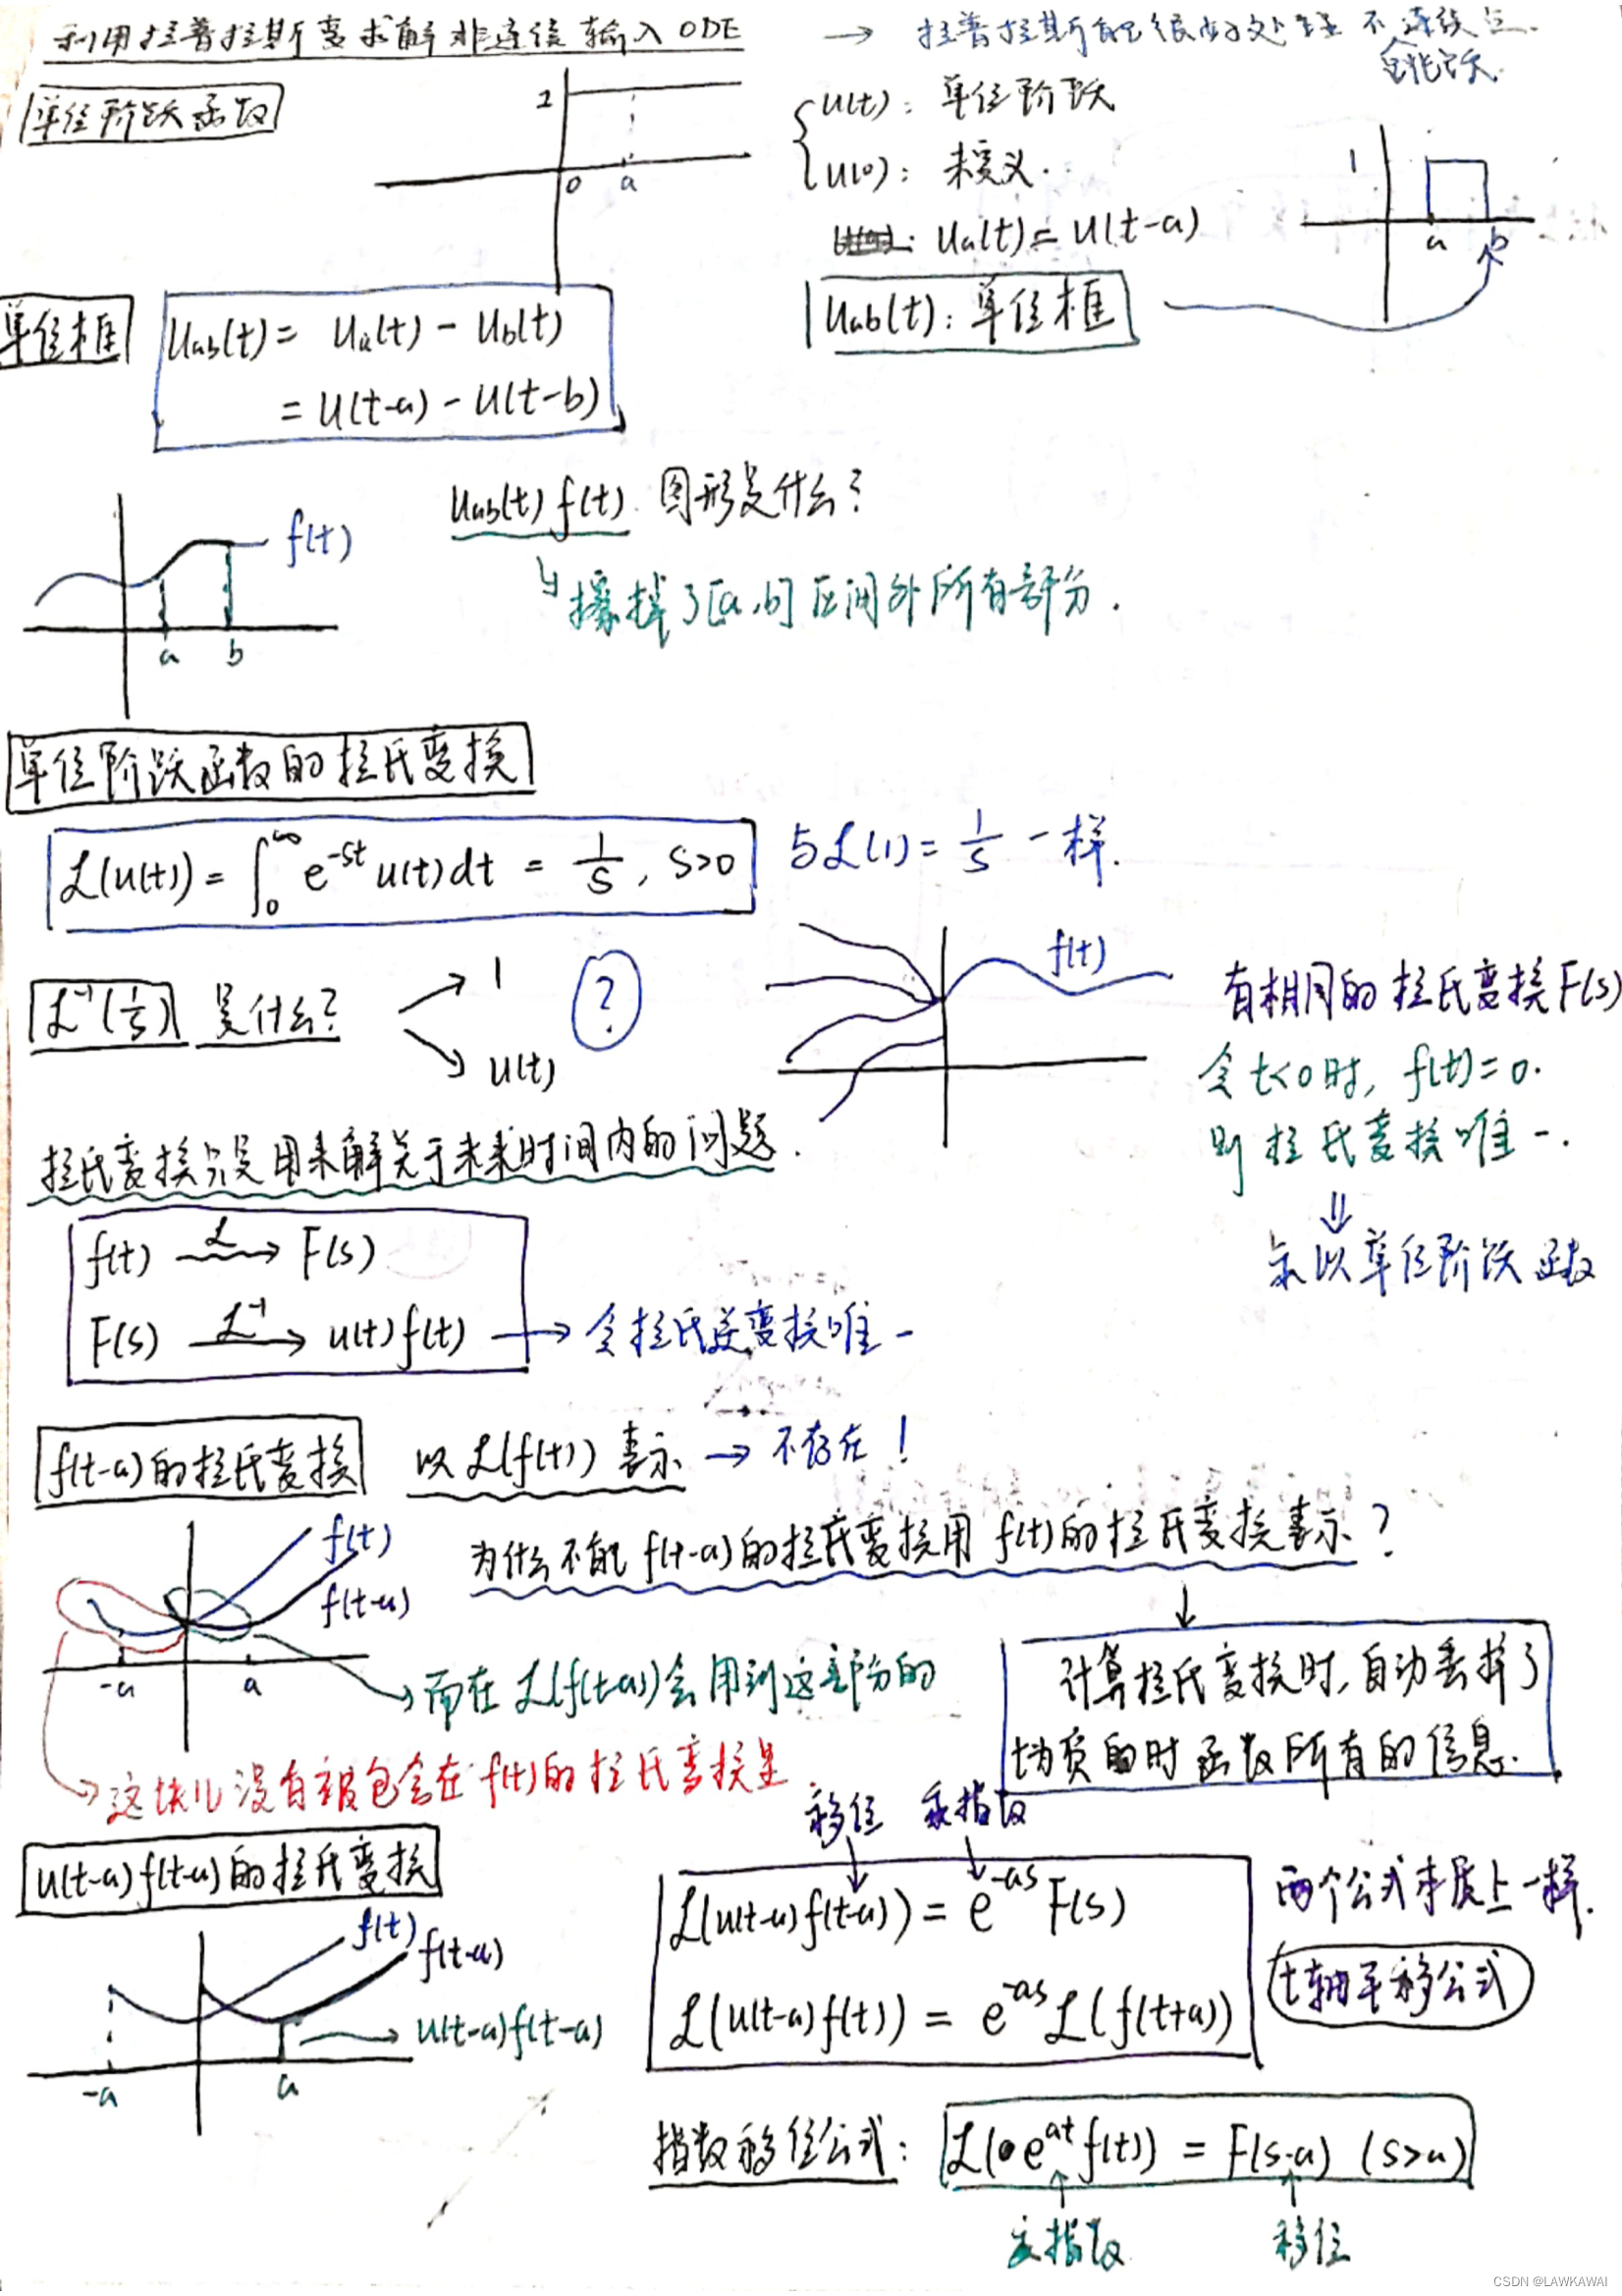 利用拉普拉斯变求解非连续输入ODE → 拉普拉斯能很好处理不连续点.
含阶跃.
单位阶跃函数
1
0 a
u(t): 单位阶跃
u(0): 未定义.
ua(t)= u(t-a)
1
a b
单位框
uab(t)= ua(t) - ub(t)
= u(t-a) - u(t-b)
uab(t): 单位框
uab(t) f(t) 图形是什么?
↳ 擦掉了[a,b]区间外所有部分.
f(t)
a b
单位阶跃函数的拉氏变换
ℒ(u(t)) = ∫₀^∞ e^{-st} u(t)dt = 1/s, s>0 与ℒ(1) = 1/s 一样.
ℒ⁻¹(1/s) 是什么? 1 ?
u(t)
f(t)
有相同的拉氏变换F(s)
令t<0时, f(t)=0.
则拉氏变换唯一.
⇓
乘以单位阶跃函数
拉氏变换只是用来解关于未来时间内的问题.
f(t) —ℒ→ F(s)
F(s) —ℒ⁻¹→ u(t)f(t) → 令拉氏逆变换唯一
f(t-a)的拉氏变换 以ℒ(f(t))表示 → 不存在!
为什么不能f(t-a)的拉氏变换用f(t)的拉氏变换表示?
f(t)
f(t-a)
-a a
→ 而在ℒ(f(t-a))会用到这部分的
计算拉氏变换时,自动丢掉了
t为负的时函数所有的信息.
→ 这块儿没有被包含在f(t)的拉氏变换里
移位 乘指数
u(t-a)f(t-a)的拉氏变换
ℒ(u(t-a)f(t-a)) = e^{-as} F(s)
ℒ(u(t-a)f(t)) = e^{-as} ℒ(f(t+a))
两个公式本质上一样.
t轴平移公式
f(t) f(t-a)
→ u(t-a)f(t-a)
-a a
指数移位公式: ℒ(e^{at} f(t)) = F(s-a) (s>a)
乘指数 移位
CSDN @LAWKAWAI